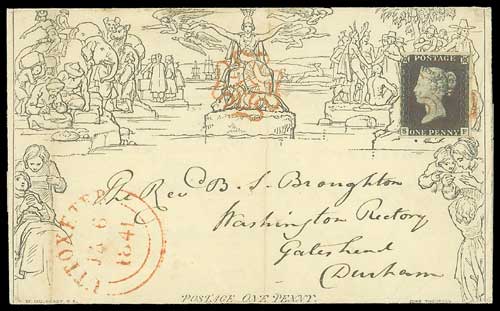 POSTAGE
S ONE PENNY F
The Revd. B. S. Broughton
Washington Rectory
Gateshead
Durham
UTTOXETER
JA 6
1841
POSTAGE ONE PENNY.